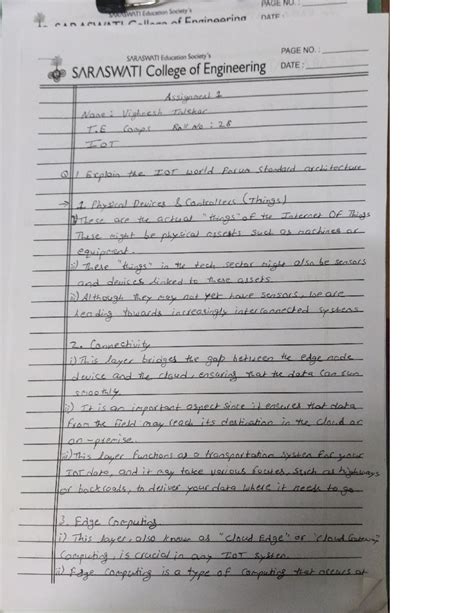 SARASWATI Education Society's
PAGE NO. :
SARASWATI College of Engineering
DATE :
SARASWATI Education Society's
PAGE NO. :
SARASWATI College of Engineering
DATE :
Assignment 1
Name : Vighnesh
T.E Comps Roll No : 28
IOT
Q.1 Explain the IOT world Forum Standard architecture
→ 1. Physical Devices & Controllers (Things)
i) These are the actual "things" of the Internet Of Things
These might be physical assests such as machines or
equipment.
ii) These "things" in the tech sector might also be sensors
and devices linked to these assets.
iii) Although they may not yet have sensors, we are
tending towards increasingly interconnected systems.
2. Connectivity
i) This layer bridges the gap between the edge node
device and the cloud, ensuring that the data can run
smoothly.
ii) It is an important aspect since it ensures that data
from the field may reach its destination in the cloud or
on-premise.
iii) This layer functions as a transportation system for your
IoT data, and it may take various routes, such as highways
or backroads, to deliver your data where it needs to go.
3. Edge Computing
i) This layer, also known as "Cloud Edge" or "Cloud Gateway"
Computing, is crucial in any IoT system.
ii) Edge Computing is a type of computing that occurs at